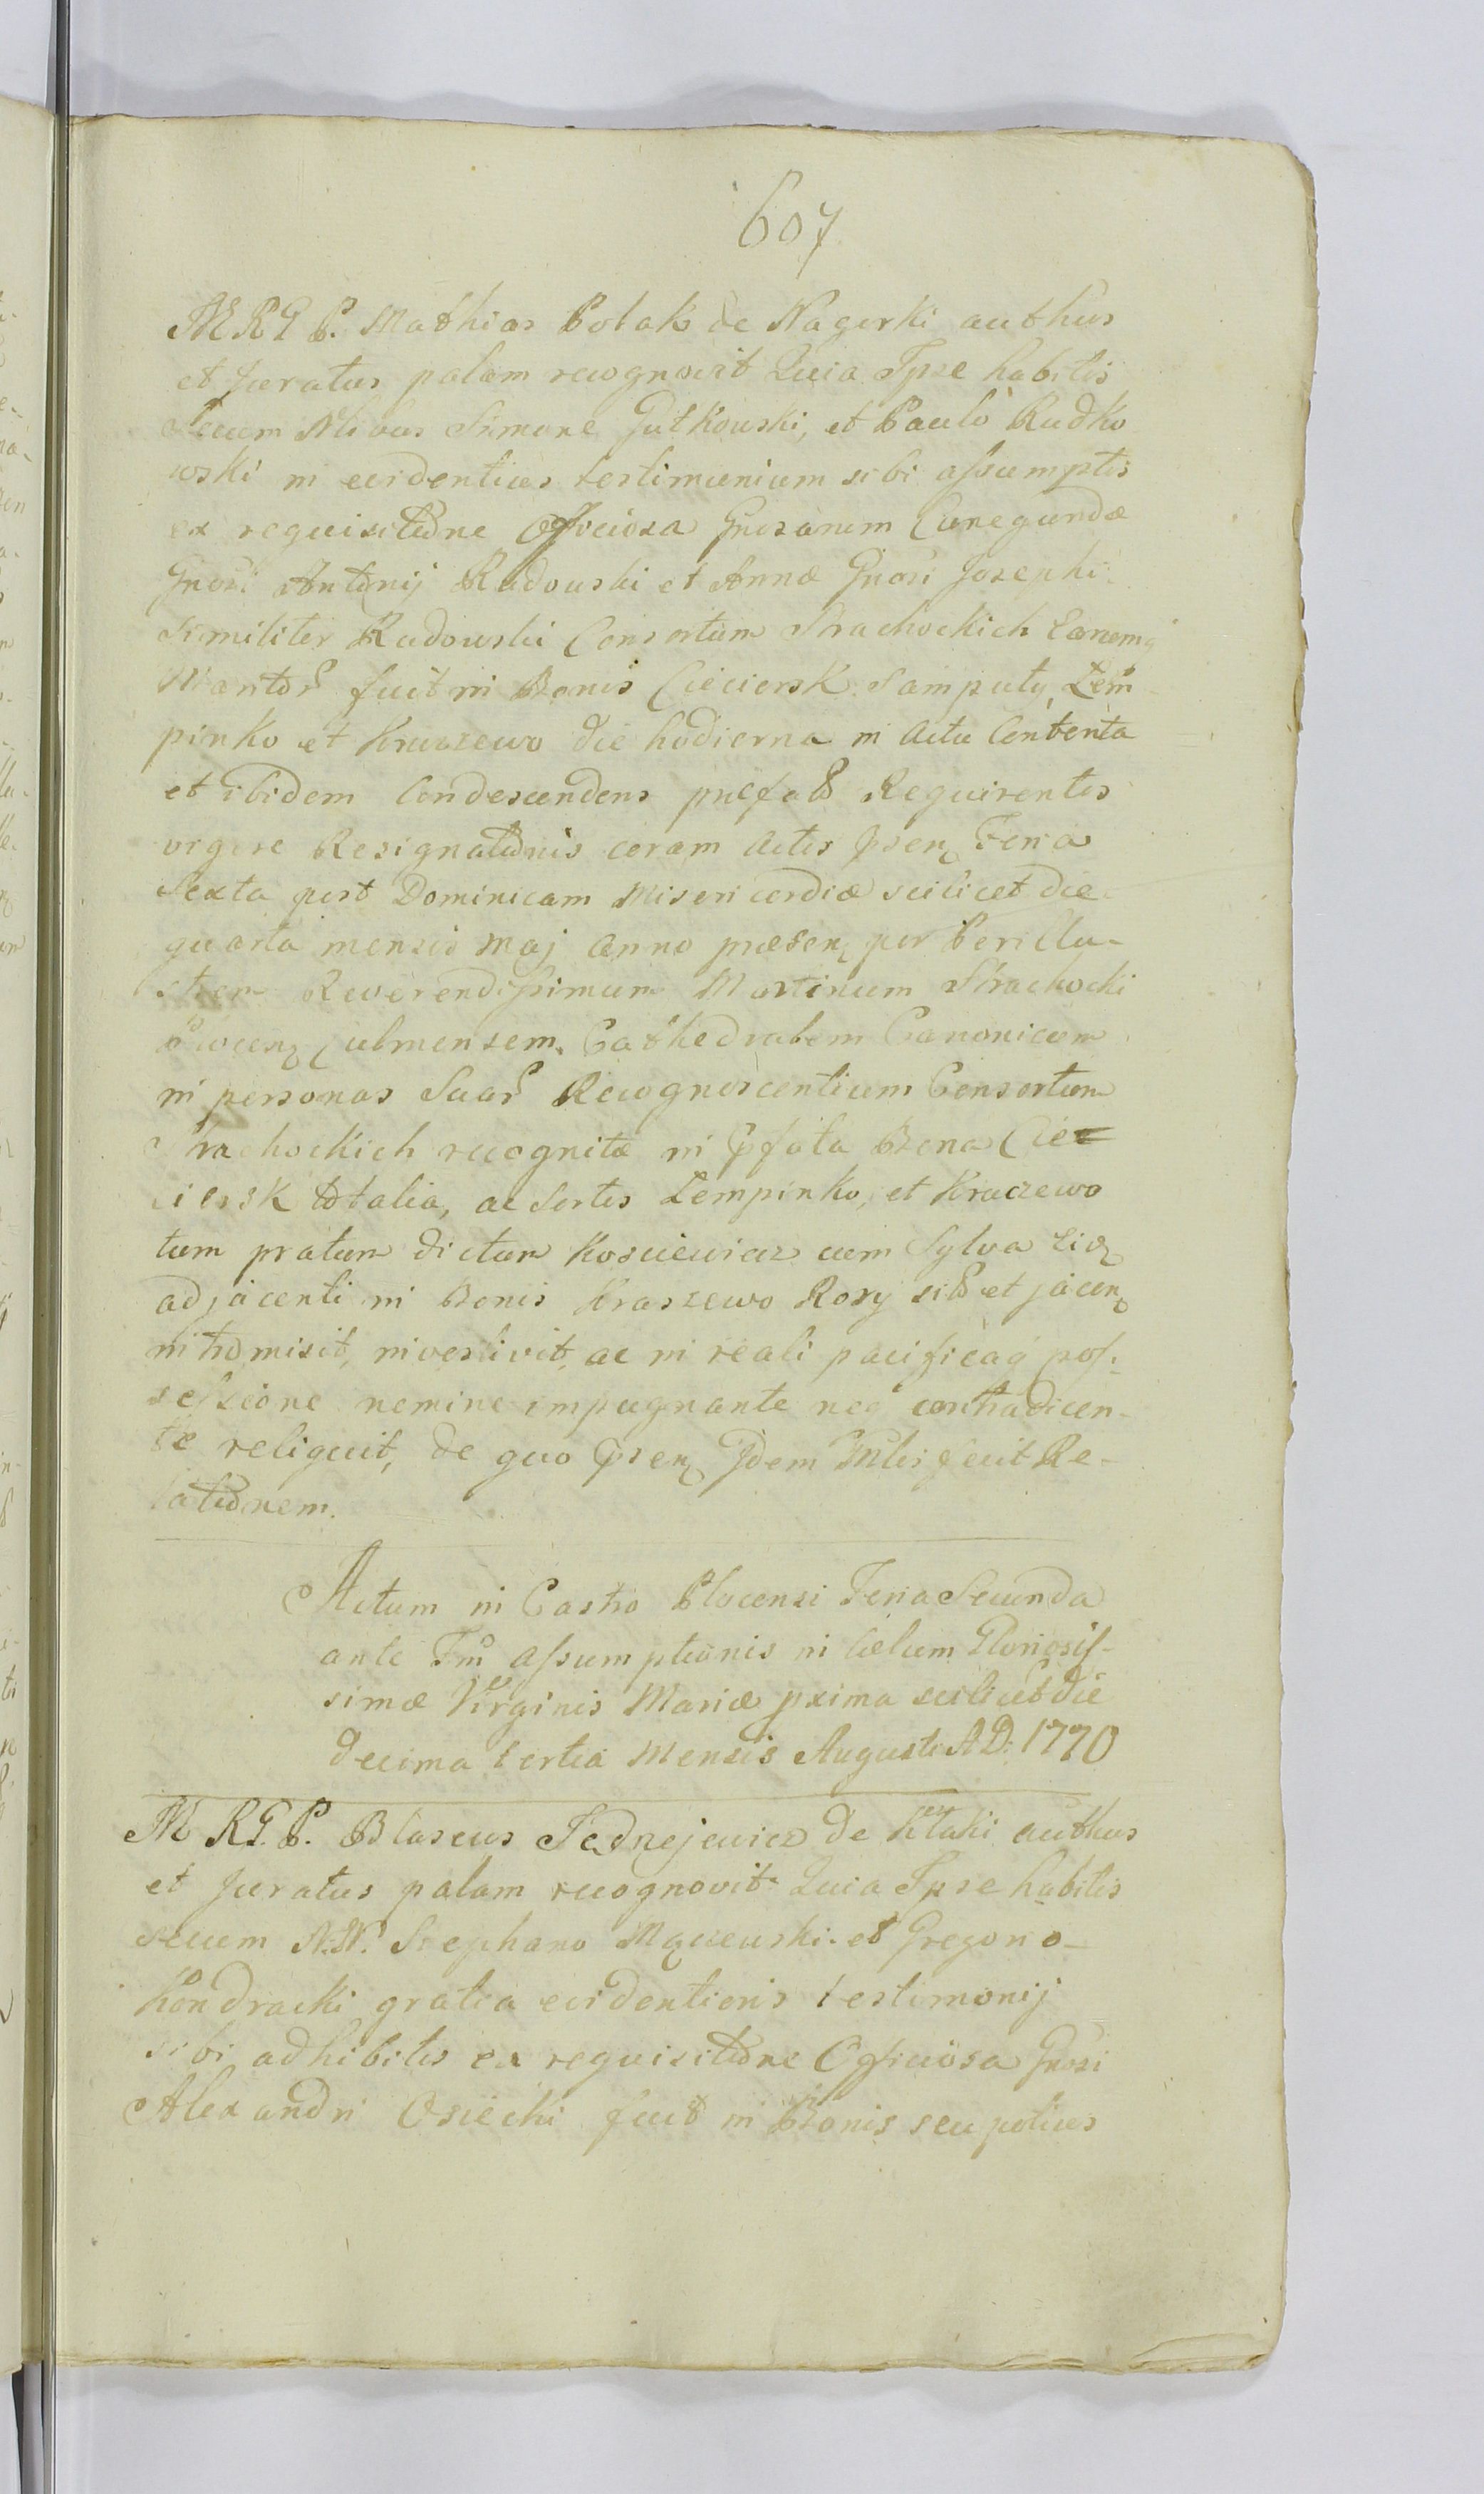 607
M R G P. Mathias Polak de Nagurki authus
et Juratus palam recognovit Quia Ipse habitis
secum Nlibus Simone Gutkouski, et Paulo Rudko
wski in evidentius testimonium sibi assumptis
ex requisitione Officiosa Gnosarum Cunegundæ
Gnosi Antonij Radouski et Annæ Gnosi Josephi
similiter Radouski Consortum Strachockich Earumq
Maritor fuit in Bonis Cieciersk Samputy Lem
pinko et Kraszewo die hodierna in Actu Contenta
et ibidem Condescendens præfat Requirentes
vigore Resignationis coram Actis psen Feria
Sexta post Dominicam Misericordiæ scilicet die
quarta mensis Maj Anno præsen per Perillu-
strem Reverendissimum Martinum Strachocki
Culmensem Cathedralem Canonicum
in personas Suar Recognoscentium Consortum
Strachockich recognitæ in pfata Bona Cie
ciersk totalia, ac Sortes Lempinko, et Kraczewo
tum pratum dictum Kosciewicz cum Sylva
adjacenti in Bonis Kraszewo Rosy sit et jacen
intromisit, investivit, ac in reali pacificaq pos-
sessione nemine impugnante neq contradicen-
te reliquit, de quo psen Idem Mtlis fecit Re-
lationem.
Actum in Castro Plocensi Feria Secunda
ante Fm Assumptionis in Cælum Gloriosis-
simæ Virginis Mariæ pxima scilicet die
decima tertia Mensis Augusti A D. 1770
M R G. P. Blasius Jednejewicz de authus
et Juratus palam recognovit Quia Ipse habitis
secum N.N. Stephano et Gregorio
Kondracki gratia evidentioris testimonij
sibi adhibitis ex requisitione Officiosa Gnosi
Alexandri Osiecki fuit in Bonis seu potius